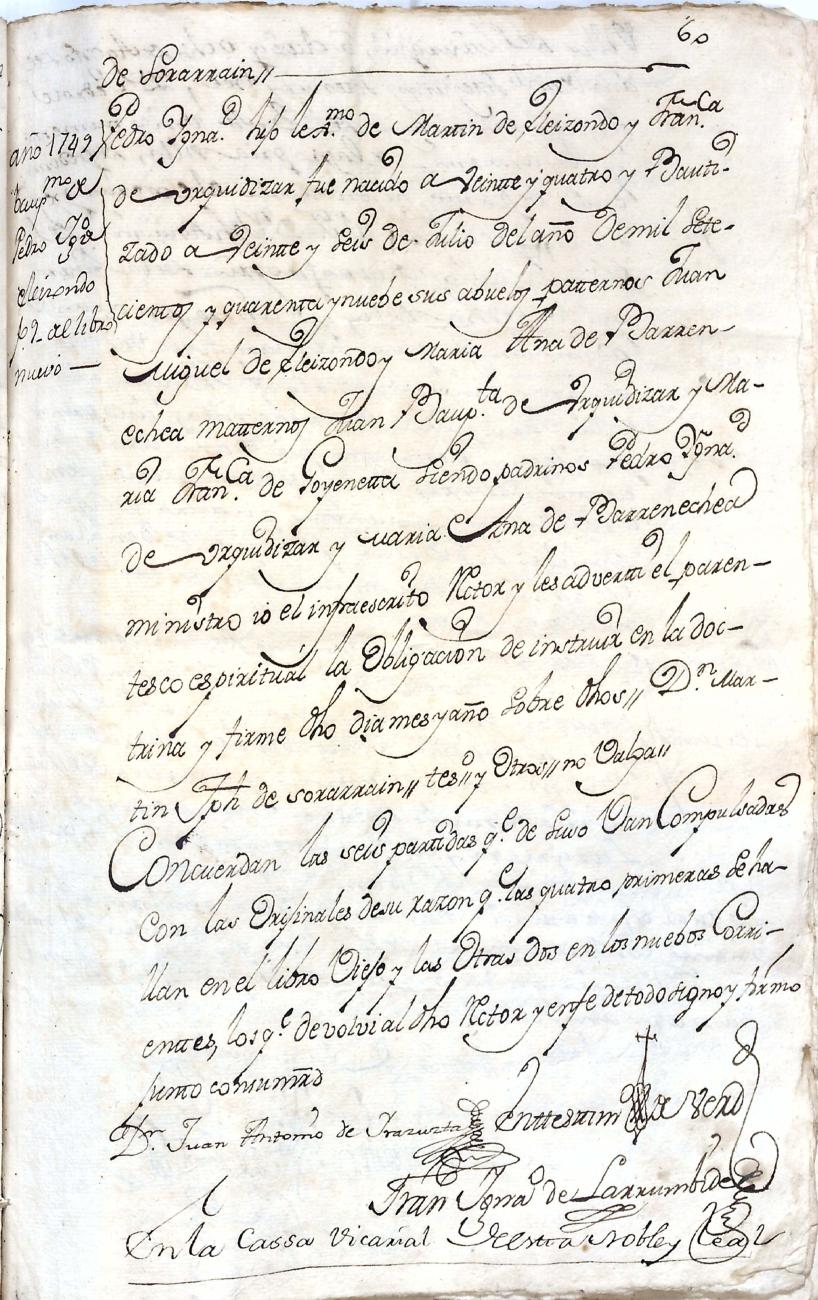 60
de Sorarrain //
año 1749
Baup.mo de
Pedro Ygº
eleizondo
fº 2 del libro
nuevo —
Pedro Ygna.º hijo lex.mo de Martin de Eleizondo y Fran.ca
de Urquidizar fue nacido a Veintte y quatro y Bauti-
zado a Veintte y seis de Julio del año de mil sete-
cientos y quarenta y nuebe sus abuelos patternos Juan
Miguel de Eleizondo y Maria Ana de Barren-
echea matternos Juan Baup.ta de Urquidizar y Ma-
ria Fran.ca de Goyenetta siendo padrinos Pedro Ygna.º
de Urquidizar y Maria Ana de Barrenechea
ministro io el infraescrito Rector y les adverti el paren-
tesco espiritual la Obligacion de instruir en la doc-
trina y firme dho dia mes y año sobre dhos // D.n Mar-
tin Jph de sorarrain // tes.º // y Otros // no Valga //
Concuerdan las seis partidas q.e de suso Van Compulsadas
Con las Orijinales de su razon q.e las quatro primeras se ha-
llan en el libro Viejo y las Otras dos en los nuebos Corri-
enttes, los q.e devolvi al dho Rector y en fe de todo signo y firmo
junto con su mrd
Enttestim.º de Verd
D.r Juan Antonio de Irazusta
Fran Ygnaº de Larrumbide
En la Cassa Vicarial de estta Noble y Leal